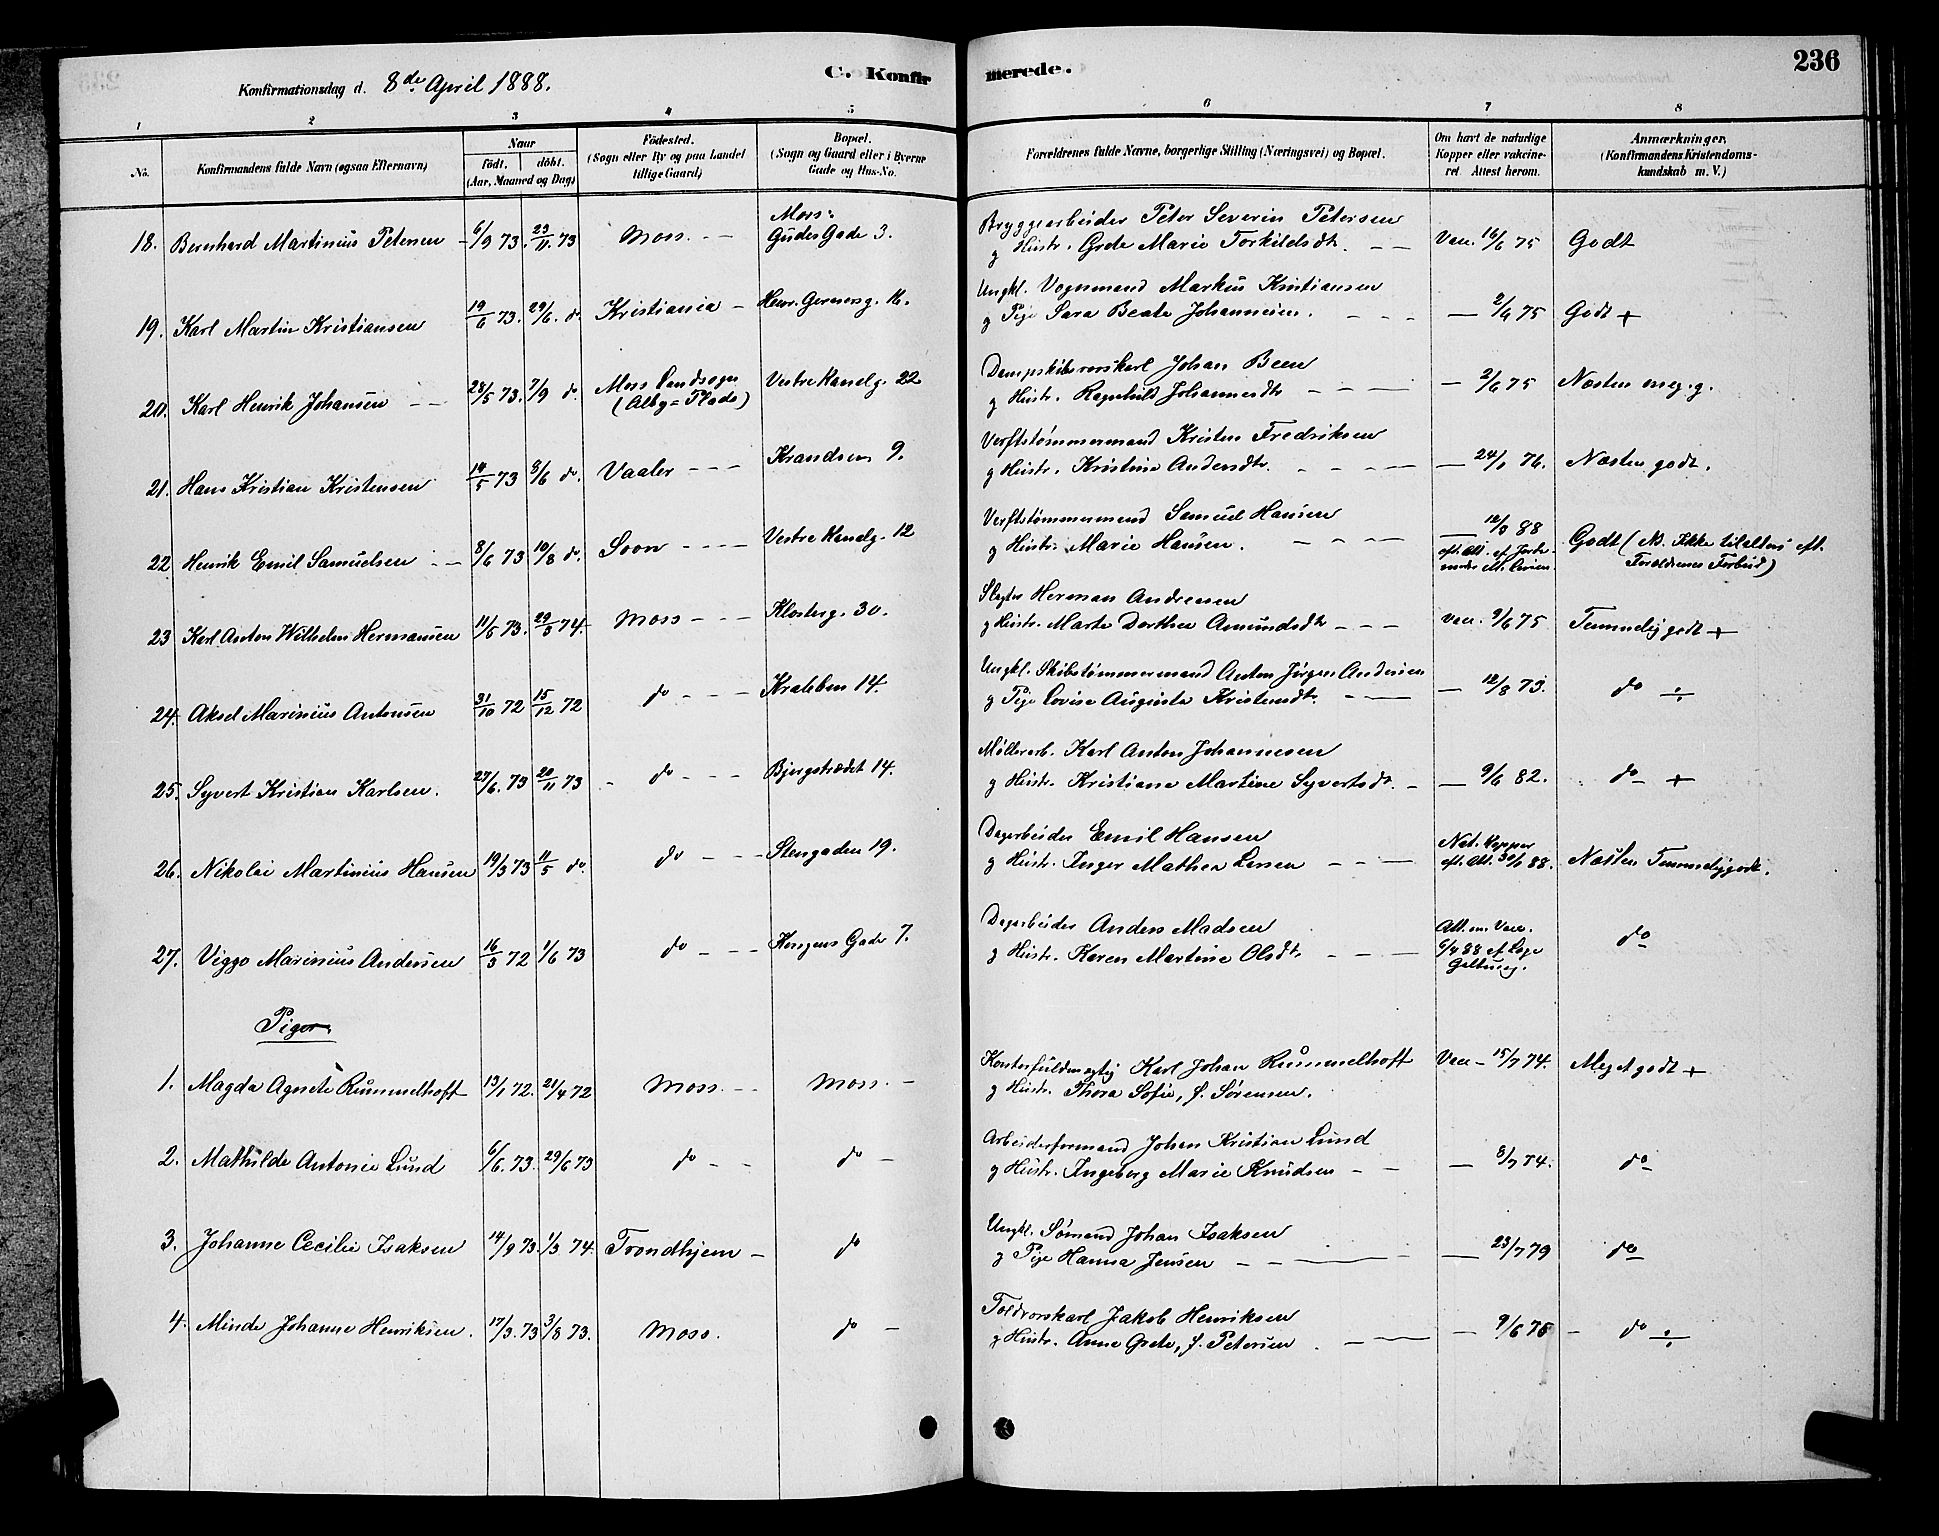 236
Konfirmationsdag d. 8de April 1888.
C. Konfirmerede.
1 2 3 4 5 6 7 8
No.
Konfirmandens fulde Navn (ogsaa Efternavn)
Naar
födt. döbt.
(Aar, Maaned og Dag)
Födested.
(Sogn eller By og paa Landet
tillige Gaard)
Bopæl.
(Sogn og Gaard eller i Byerne
Gade og Hus-No.
Forældrenes fulde Navne, borgerlige Stilling (Næringsvei) og Bopæl.
Om havt de naturlige
Kopper eller vakcine-
ret. Attest herom.
Anmærkninger,
(Konfirmandens Kristendoms-
kundskab m. V.)
18. Bernhard Martinius Petersen - 6/9 73. 23/11 73 Moss. - - Moss: Gudes Gade 3. Bryggearbeider Peter Severin Petersen
g Hustr. Grete Marie Torkildsdt. - - Vac. 16/6 75 Godt
19. Karl Martin Kristiansen 19/6 73. 29/6. do Kristiania - Henr. Gerners g. 16. Ungkl. Vognmand Markus Kristiansen
g Pige Sara Beate Johannesen. - - - — 2/9 75 Godt +
20. Karl Henrik Johansen - - 28/5 73. 7/9 do. Moss Landsogn (Alby= Plads) Vestre Kanalg. 22 Dampskibsvorskarl Johan Been
g Hustr. Ragnhild Johannesdt - - - — 2/6 75 Næsten meg. g.
21. Hans Kristian Kristensen 14/5 73 8/6 do. Vaaler - - - Krandsen 9. Verftstømmermand Kristen Fredriksen
g Hustr. Kristine Andersdt. - - - — 24/1 76. Næsten godt.
22. Henrik Emil Samuelsen - - 8/6 73 10/8 do. Soon - - - Vestre Kanalg. 12 Verftstømmermand Samuel Hansen
g Hustr. Marie Hansen. - - - — 12/3 88 eft. Att. af Jorde-moder Godt (NB. Ikke tilalters eft.
Forældrenes Forbud)
23. Karl Anton Wilhelm Hermansen 11/5 73. 29/3 74. Moss - - - Klosterg. 30. Slagter Herman Andresen
g Hustr. Marte Dorthea Amundsdt - - - Vac. 9/6 75 Temmelig godt +
24. Aksel Marinius Antonsen 31/10 72 15/12 72 do - - - Krabben 14. Ungkl. Skibstømmermand Anton Jørgen Andersen
g Pige Lovise Augusta Kristensdt. - — — 12/8 73. do ÷
25. Syvert Kristian Karlsen. 27/6. 73 20/11 73 do - - - Bjergstrædet 14. Møllerarb. Karl Anton Johannesen
g Hustr. Kristiane Martine Syvertsdt. - — 9/6 82. do +
26. Nikolai Martinius Hansen 19/3 73 11/5 do. do - - - Stengaden 19. Dagarbeider Emil Hansen
g Hustr. Inger Mathea Larsen - - — Nat. Kopper eft. Att. 30/1 88. Næsten Temmelig godt.
27. Viggo Marinius Andersen 16/3 72 1/6 73 do - - - Kongens Gade 7. Dagarbeider Anders Madsen
g Hustr. Karen Martine Olsdt. - - — Att. om Vac. 6/4 88 af Læge Galtung. do
Piger.
1. Magda Agnete Rummelhoff 13/1 72. 21/4 72 Moss. - - Moss. - Kontorfuldmægtig Karl Johan Rummelhoff
g Hustr. Thora Sofie, f. Sørensen. Vac - 15/7 74. Meget godt +
2. Mathilde Antonie Lund 6/6. 73. 29/6 73 do - - do - Arbeiderformand Johan Kristian Lund
g Hustr. Ingeborg Marie Knudsen - - — 8/7 74. do
3. Johanne Cecilie Isaksen 14/9 73. 1/3 74. Trondhjem - do Ungkl. Sømand Johan Isaksen
g Pige Hanna Jensen - - — — 23/7 79 do
4. Minda Johanne Henriksen. 17/3. 73 3/8 73. Moss. do - Toldvorskarl Jakob Henriksen
g Hustr. Anne Grete, f. Petersen. — — 9/6 76 - do ÷